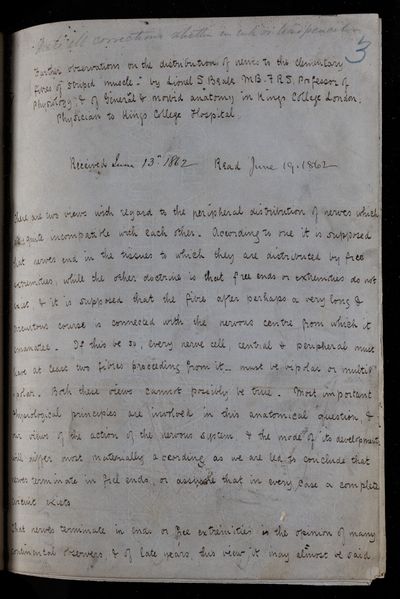 Note all corrections whether in ink or lead pencil
3
Further observations on the distribution of nerves to the elementary
fibres of striped muscle - by Lionel S. Beale M.B. F.R.S. Professor of
Physiology & of General & morbid anatomy in Kings College London.
Physician to Kings College Hospital.
Received June 13th 1862 Read June 19. 1862
There are two views with regard to the peripheral distribution of nerves which
are quite incompatible with each other. According to one it is supposed
that nerves end in the tissues to which they are distributed by free
extremities, while the other doctrine is that free ends or extremities do not
exist & it is supposed that the fibre after perhaps a very long &
circuitous course is connected with the nervous centre from which it
emanated. If this be so, every nerve cell, central & peripheral must
have at least two fibres proceeding from it - must be bipolar or multi
polar. Both these views cannot possibly be true. Most important
physiological principles are involved in this anatomical question, &
our views of the action of the nervous system & the mode of its development
will differ most materially according as we are led to conclude that
nerves terminate in free ends, or assume that in every case a complete
circuit exists
That nerves terminate in ends or free extremities is the opinion of many
continental observers, & of late years this view it may almost be said